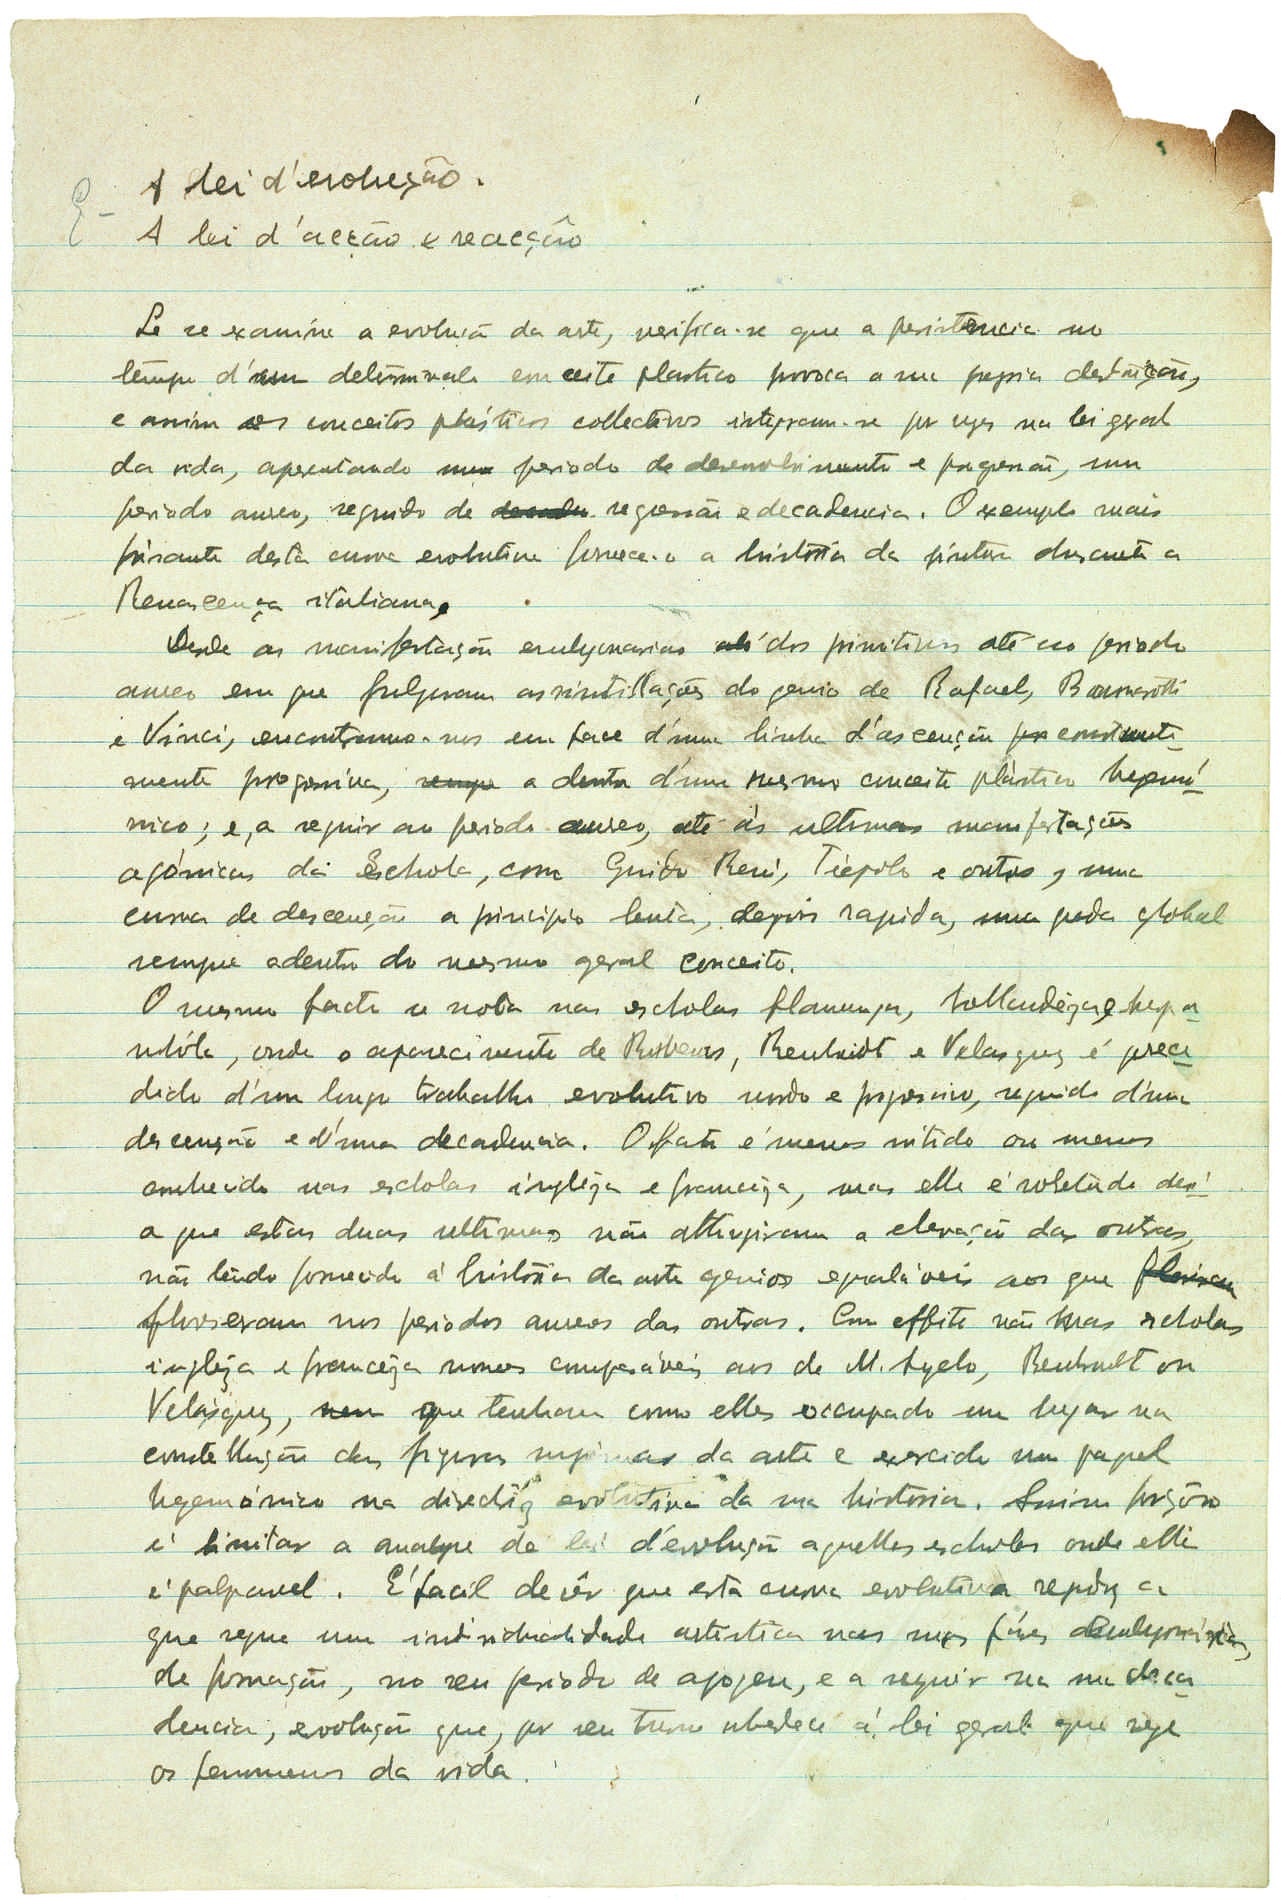 A lei d'evolução.
A lei d'acção e reacção
Se se examina a evolução da arte, verifica-se que a persistencia no
tempo d'um determinado conceito plastico provoca a sua propria destruição,
e assim os conceitos plásticos collectivos integram-se por vezes na lei geral
da vida, apresentando um periodo de desenvolvimento e progressão, um
periodo aureo, seguido de regressão e decadencia. O exemplo mais
frisante desta curva evolutiva fornece-o a história da pintura durante a
Renascença italiana.
Desde as manifestação embryonarias dos primitivos até ao periodo
aureo em que fulguram as sintillações do genio de Rafael, Buonarotti
e Vinci, encontramo-nos em face d'uma linha d'ascenção constante-
mente progressiva, a dentro d'um mesmo conceito plàstico hegemó-
nico; e, a seguir ao periodo aureo, até ás ultimas manifestações
agónicas da Eschola, com Guido Reni, Tiépolo e outros, uma
curva de descenção a principio lenta, depois rapida, uma queda global
sempre adentro do mesmo geral conceito.
O mesmo facto se nota nas escholas flamenga, hollandêza e hespa-
nhóla, onde o aparecimento de Rubens, Rembrandt e Velasquez é prece-
dido d'um longo trabalho evolutivo surdo e progressivo, seguido d'uma
descenção e d'uma decadencia. O facto é menos nitido ou menos
conhecido nas escholas inglêza e francêza, mas elle é sobretudo devi-
o a que estas duas ultimas não attingiram a elevação das outras,
não tendo fornecido á história da arte genios egualáveis aos que
floresceram nos periodos aureos das outras. Com effeito não ha nas escholas
inglêza e francêza nomes comparáveis aos de M. Angelo, Rembrandt ou
Velásquez, que tenham como elles occupado um lugar na
constellação das figuras supremas da arte e exercido um papel
hegemónico na direcção evolutiva da sua historia. Assim forçoso
é limitar a analyse da lei d'evolução aquellas escholas onde elle
é palpavel. É facil de vêr que esta curva evolutiva repõe a
que segue uma individualidade artistica nas suas fáses embryonárias,
de formação, no seu periodo de apogeu, e a seguir na sua deca-
dencia, evolução que, por seu turno obedece á lei geral que rege
os fenomenos da vida.